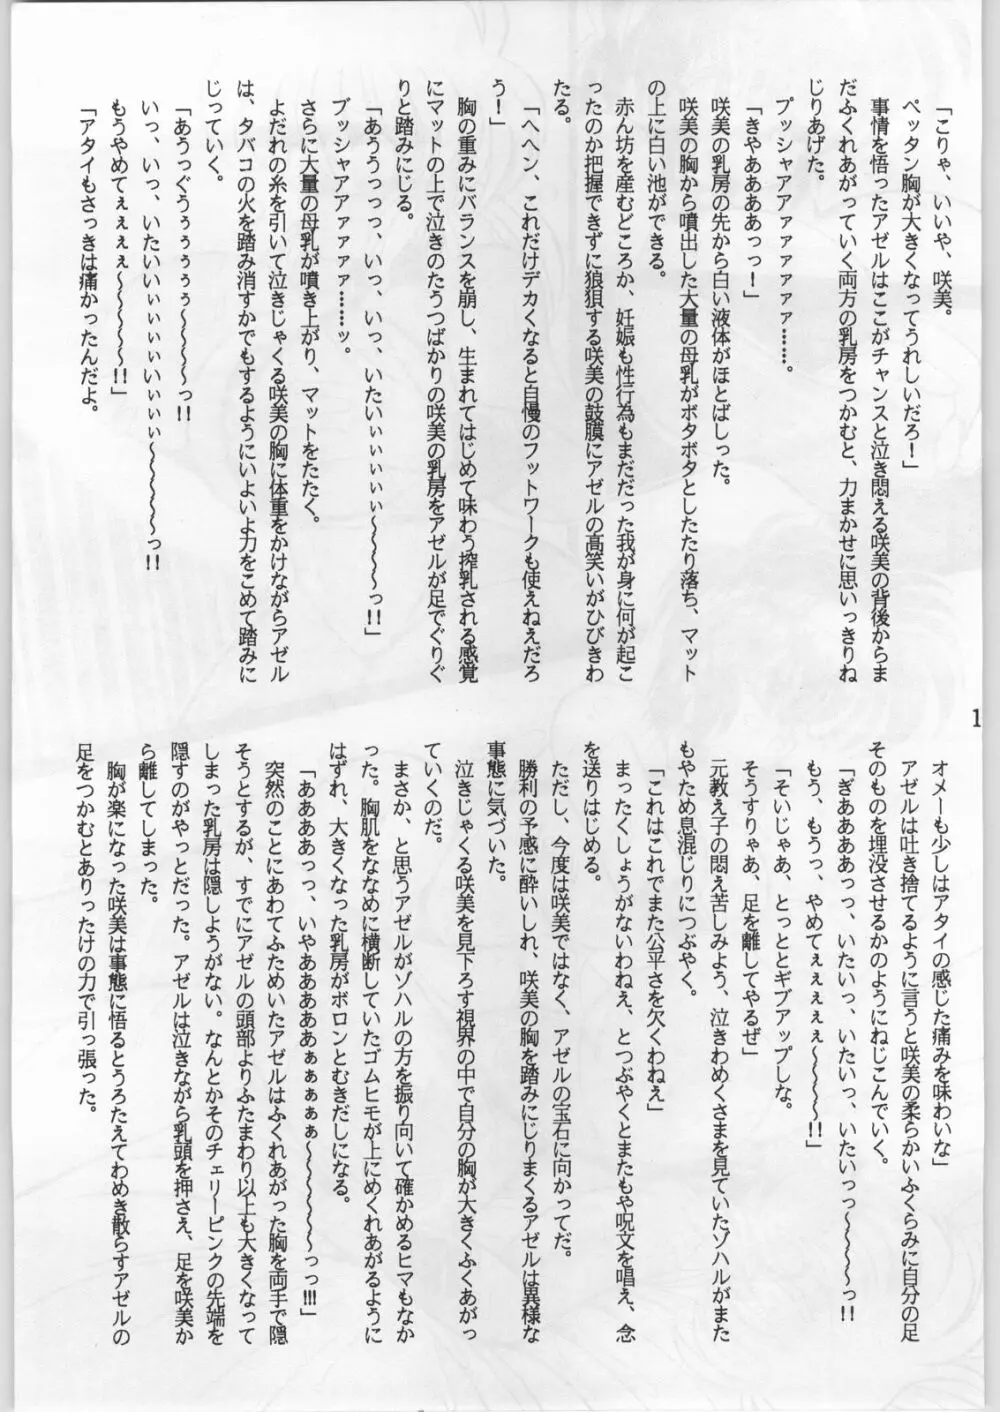 「こりゃ、いいや、咲美。
ペッタン胸が大きくなってうれしいだろ！」
事情を悟ったアゼルはここがチャンスと泣き悶える咲美の背後からま
だふくれあがっていく両方の乳房をつかむと、力まかせに思いっきりね
じりあげた。
プッシャアアアァァァァァ……。
「きゃああああっっ！」
咲美の乳房の先から白い液体がほとばしった。
咲美の胸から噴出した大量の母乳がボタボタとしたたり落ち、マット
の上に白い池ができる。
赤ん坊を産むどころか、妊娠も性行為もまだだった我が身に何が起こ
ったのか把握できずに狼狽する咲美の鼓膜にアゼルの高笑いがひびきわ
たる。
「へへン、これだけデカくなると自慢のフットワークも使えねえだろ
う！」
胸の重みにバランスを崩し、生まれてはじめて味わう搾乳される感覚
にマットの上で泣きのたうつばかりの咲美の乳房をアゼルが足でぐりぐ
りと踏みにじる。
「あううっっっ、いっ、いっ、いたいぃぃぃぃぃ～～～～～っ!!」
ブッシャアアァァァァ……ッ。
さらに大量の母乳が噴き上がり、マットをたたく。
よだれの糸を引いて泣きじゃくる咲美の胸に体重をかけながらアゼル
は、タバコの火を踏み消すかでもするようにいよいよ力をこめて踏みに
じっていく。
「あうっぐうぅぅぅぅぅ～～～～～っ!!
いっ、いっ、いたいいぃぃぃぃいぃぃぃ～～～～～っ!!
もうやめてぇぇぇぇぇ～～～～～!!」
「アタイもさっきは痛かったんだよ。
オメーも少しはアタイの感じた痛みを味わいな」
アゼルは吐き捨てるように言うと咲美の柔らかいふくらみに自分の足
そのものを埋没させるかのようにねじこんでいく。
「ぎああああっっ、いたいっ、いたいっ、いたいっっ～～～～～っ!!
もう、もうっ、やめてぇぇぇぇぇ～～～～～!!」
「そいじゃあ、とっととギブアップしな。
そうすりゃあ、足を離してやるぜ」
元教え子の悶え苦しみよう、泣きわめくさまを見ていたゾハルがまた
もやため息混じりにつぶやく。
「これはこれでまた公平さを欠くわねぇ」
まったくしょうがないわねえ、とつぶやくとまたもや呪文を唱え、念
を送りはじめる。
ただし、今度は咲美ではなく、アゼルの宝石に向かってだ。
勝利の予感に酔いしれ、咲美の胸を踏みにじりまくるアゼルは異様な
事態に気づいた。
泣きじゃくる咲美を見下ろす視界の中で自分の胸が大きくふくあがっ
ていくのだ。
まさか、と思うアゼルがゾハルの方を振り向いて確かめるヒマもなか
った。胸肌をななめに横断していたゴムヒモが上にめくれあがるように
はずれ、大きくなった乳房がボロンとむきだしになる。
「ああああっっ、いやああああああぁぁぁぁぁ～～～～～っっ!!!」
突然のことにあわてふためいたアゼルはふくれあがった胸を両手で隠
そうとするが、すでにアゼルの頭部よりふたまわり以上も大きくなって
しまった乳房は隠しようがない。なんとかそのチェリーピンクの先端を
隠すのがやっとだった。アゼルは泣きながら乳頭を押さえ、足を咲美か
ら離してしまった。
胸が楽になった咲美は事態に悟るとうろたえてわめき散らすアゼルの
足をつかむとありったけの力で引っ張った。
1